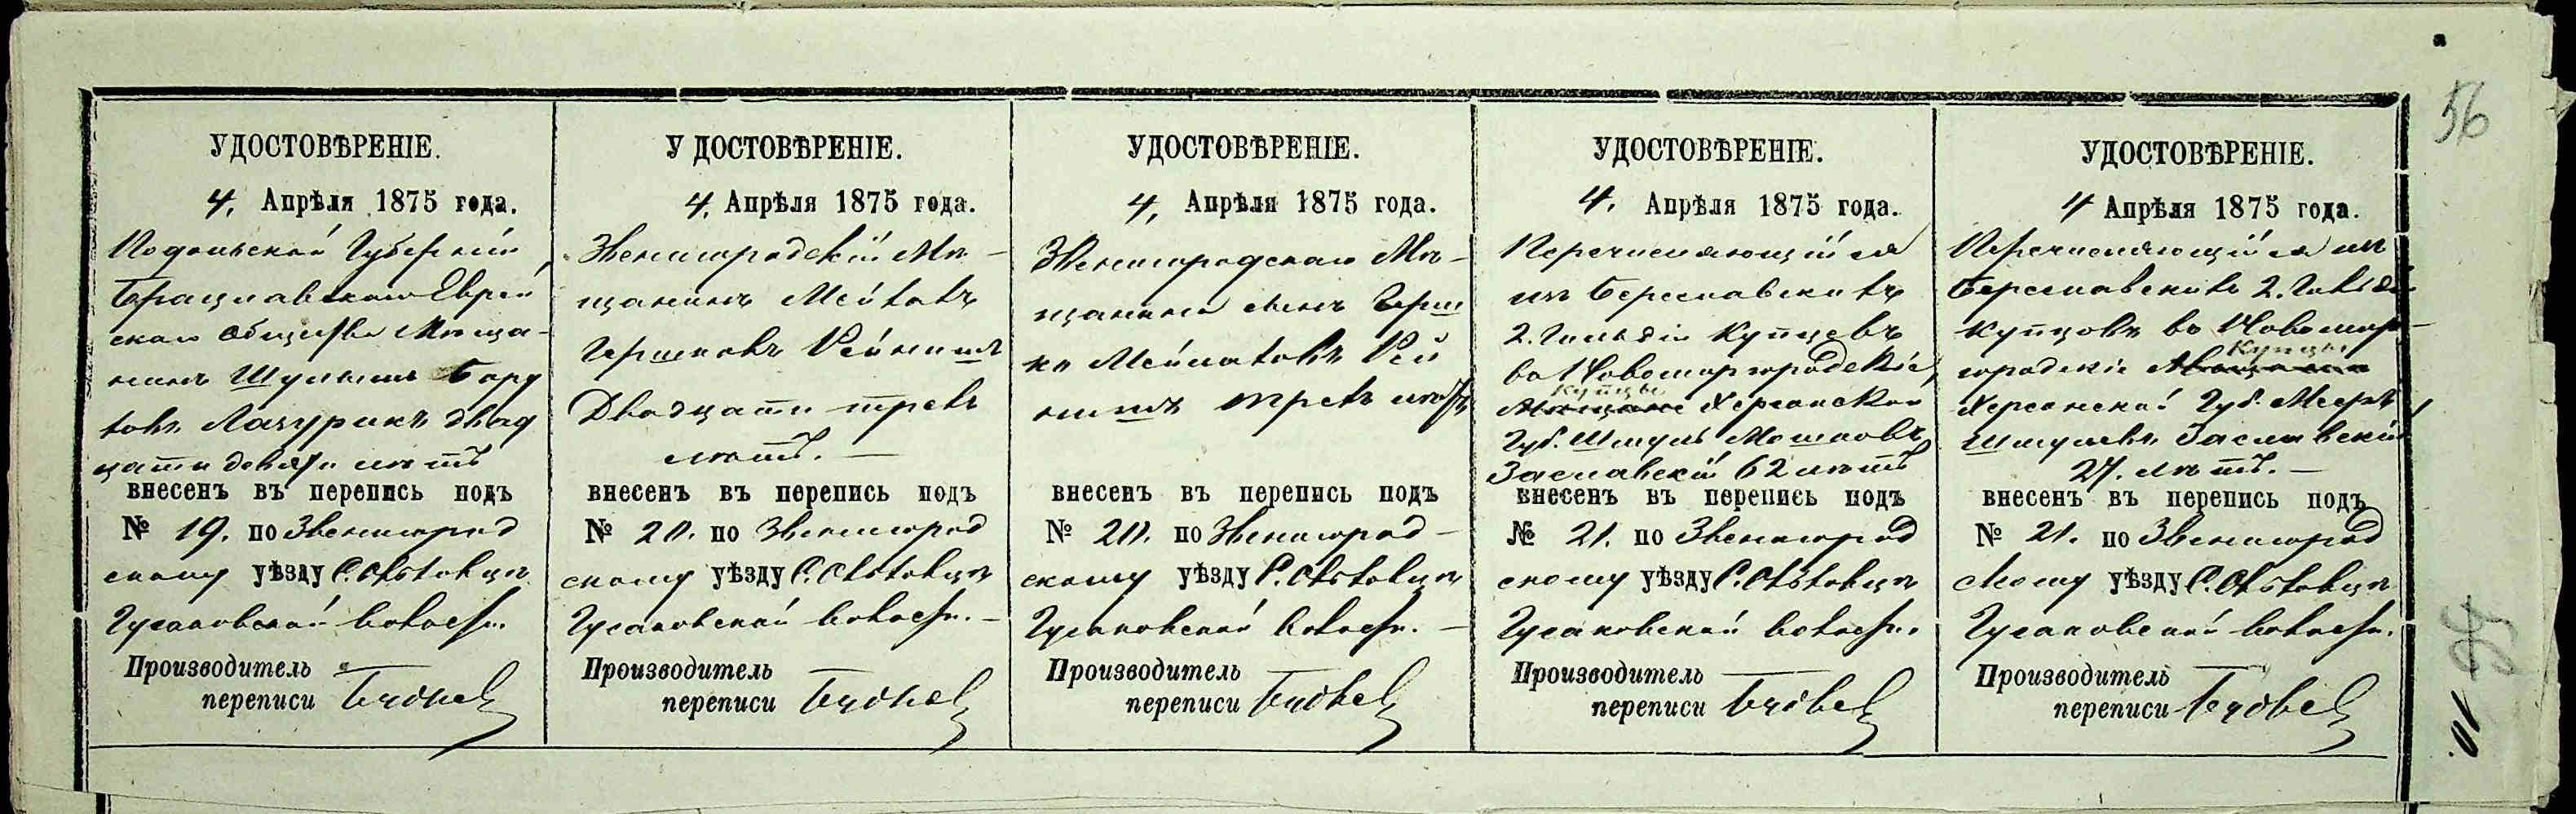 56
УДОСТОВѢРЕНІЕ.
4. Апрѣля 1875 года.
Подольской Губерніи
Брацлавскаго Еврей
скаго общества Мѣща-
нинъ Шулимъ
Лацурикъ двад
цати девяти лѣтъ
внесенъ въ перепись подъ
№ 19. по Звенигород
скому уѣзду С.
Гусаковской волости.
Производитель
переписи
УДОСТОВѢРЕНІЕ.
4. Апрѣля 1875 года.
Звенигородскій Мѣ-
щанинъ
Гершковъ
Двадцати трехъ
лѣтъ. —
внесенъ въ перепись подъ
№ 20. по Звенигород
скому уѣзду С.
Гусаковской волости. —
Производитель
переписи
УДОСТОВѢРЕНІЕ.
4. Апрѣля 1875 года.
Звенигородскаго Мѣ-
щанина сынъ Герш
ко
трехъ лѣтъ
внесенъ въ перепись подъ
№ 20. по Звенигород-
скому уѣзду С.
Гусаковской волости. —
Производитель
переписи
УДОСТОВѢРЕНІЕ.
4. Апрѣля 1875 года.
Перечисляющійся
изъ Бериславскихъ
2. Гильдіи Купцовъ
въ Новомиргородскіе
Купцы
Мѣщане Херсонской
Губ. Шмуль Мошковъ
Заславскій 62 лѣтъ
внесенъ въ перепись подъ
№ 21. по Звенигород
скому уѣзду С.
Гусаковской волости.
Производитель
переписи
УДОСТОВѢРЕНІЕ.
4 Апрѣля 1875 года.
Перечисляющійся изъ
Бериславскихъ 2. Гильдіи
Купцовъ въ Новомир-
Купцы
городскіе Мѣщане
Херсонской Губ.
Шмулевъ Заславскій
27. лѣтъ. —
внесенъ въ перепись подъ
№ 21. по Звенигород
скому уѣзду С.
Гусаковской волости.
Производитель
переписи
10.